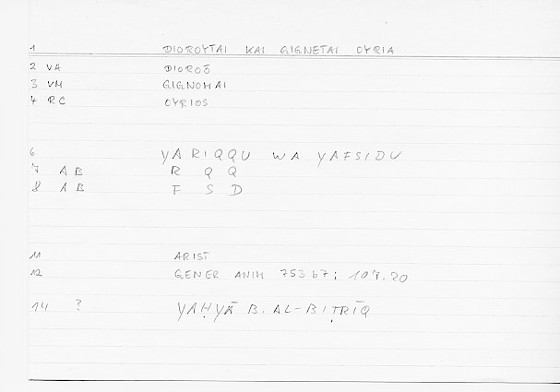 1 DIOROYTAI KAI GIGNETAI OYRIA
2 VA DIOROŌ
3 VM GIGNOMAI
4 RC OYRIOS
6 YARIQQU WA YAFSIDU
7 AB R Q Q
8 AB F S D
11 ARIST
12 GENER ANIM 753 b7; 107.20
14 ? YAḤYĀ B. AL-BIṬRĪQ